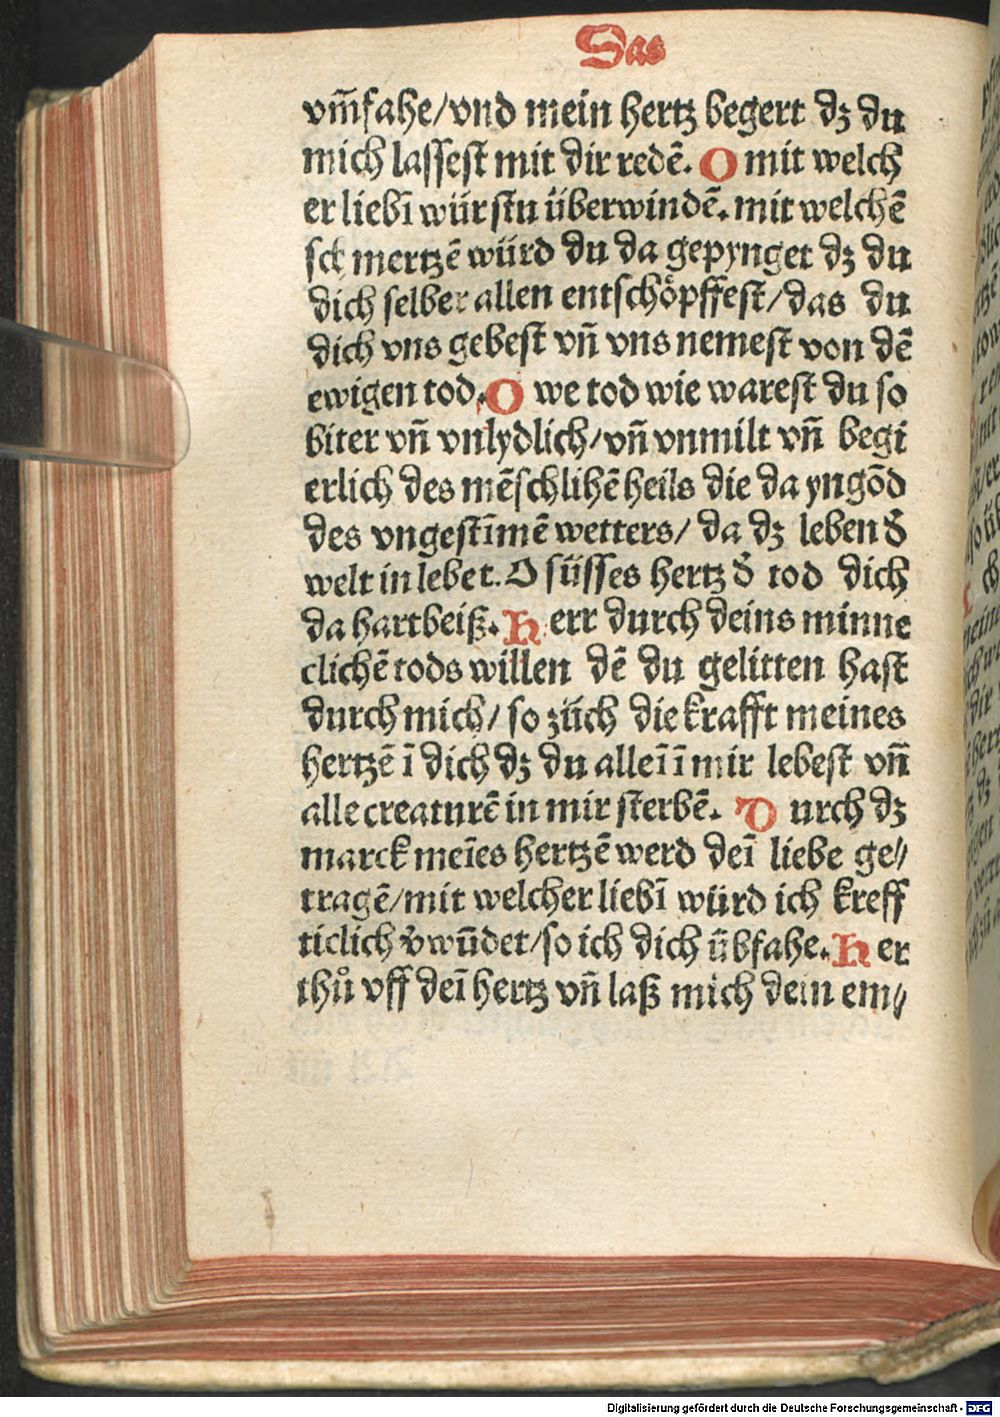 Das
vm̄fahe/vnd mein hertz begert dz du
mich lassest mit dir redē. O mit welch
er liebī würstu überwindē. mit welchē
schmertzē würd du da gepynget dz du
dich selber allen entschöpffest/das du
dich vns gebest vn̄ vns nemest von dē
ewigen tod. O we tod wie warest du so
biter vn̄ vnlydlich/vn̄ vnmilt vn̄ begi
erlich des mēschlihē heils die da yngōd
des vngestīmē wetters/ da dz leben d̕
welt in lebet. O süsses hertz d̕ tod dich
da hartbeiß. Herr durch deins minne
clichē tods willen dē du gelitten hast
durch mich/ so züch die krafft meines
hertzē ī dich dz du alleī ī mir lebest vn̄
alle creaturē in mir sterbē. Durch dz
marck meīes hertzē werd deī liebe ge⸗
tragē/mit welcher liebī würd ich kreff
ticlich v̕wūdet/so ich dich ūbfahe. Her
thůˍ vff deī hertz vn̄ laß mich dein em⸗
Digitalisierung gefördert durch die Deutsche Forschungsgemeinschaft - DFG